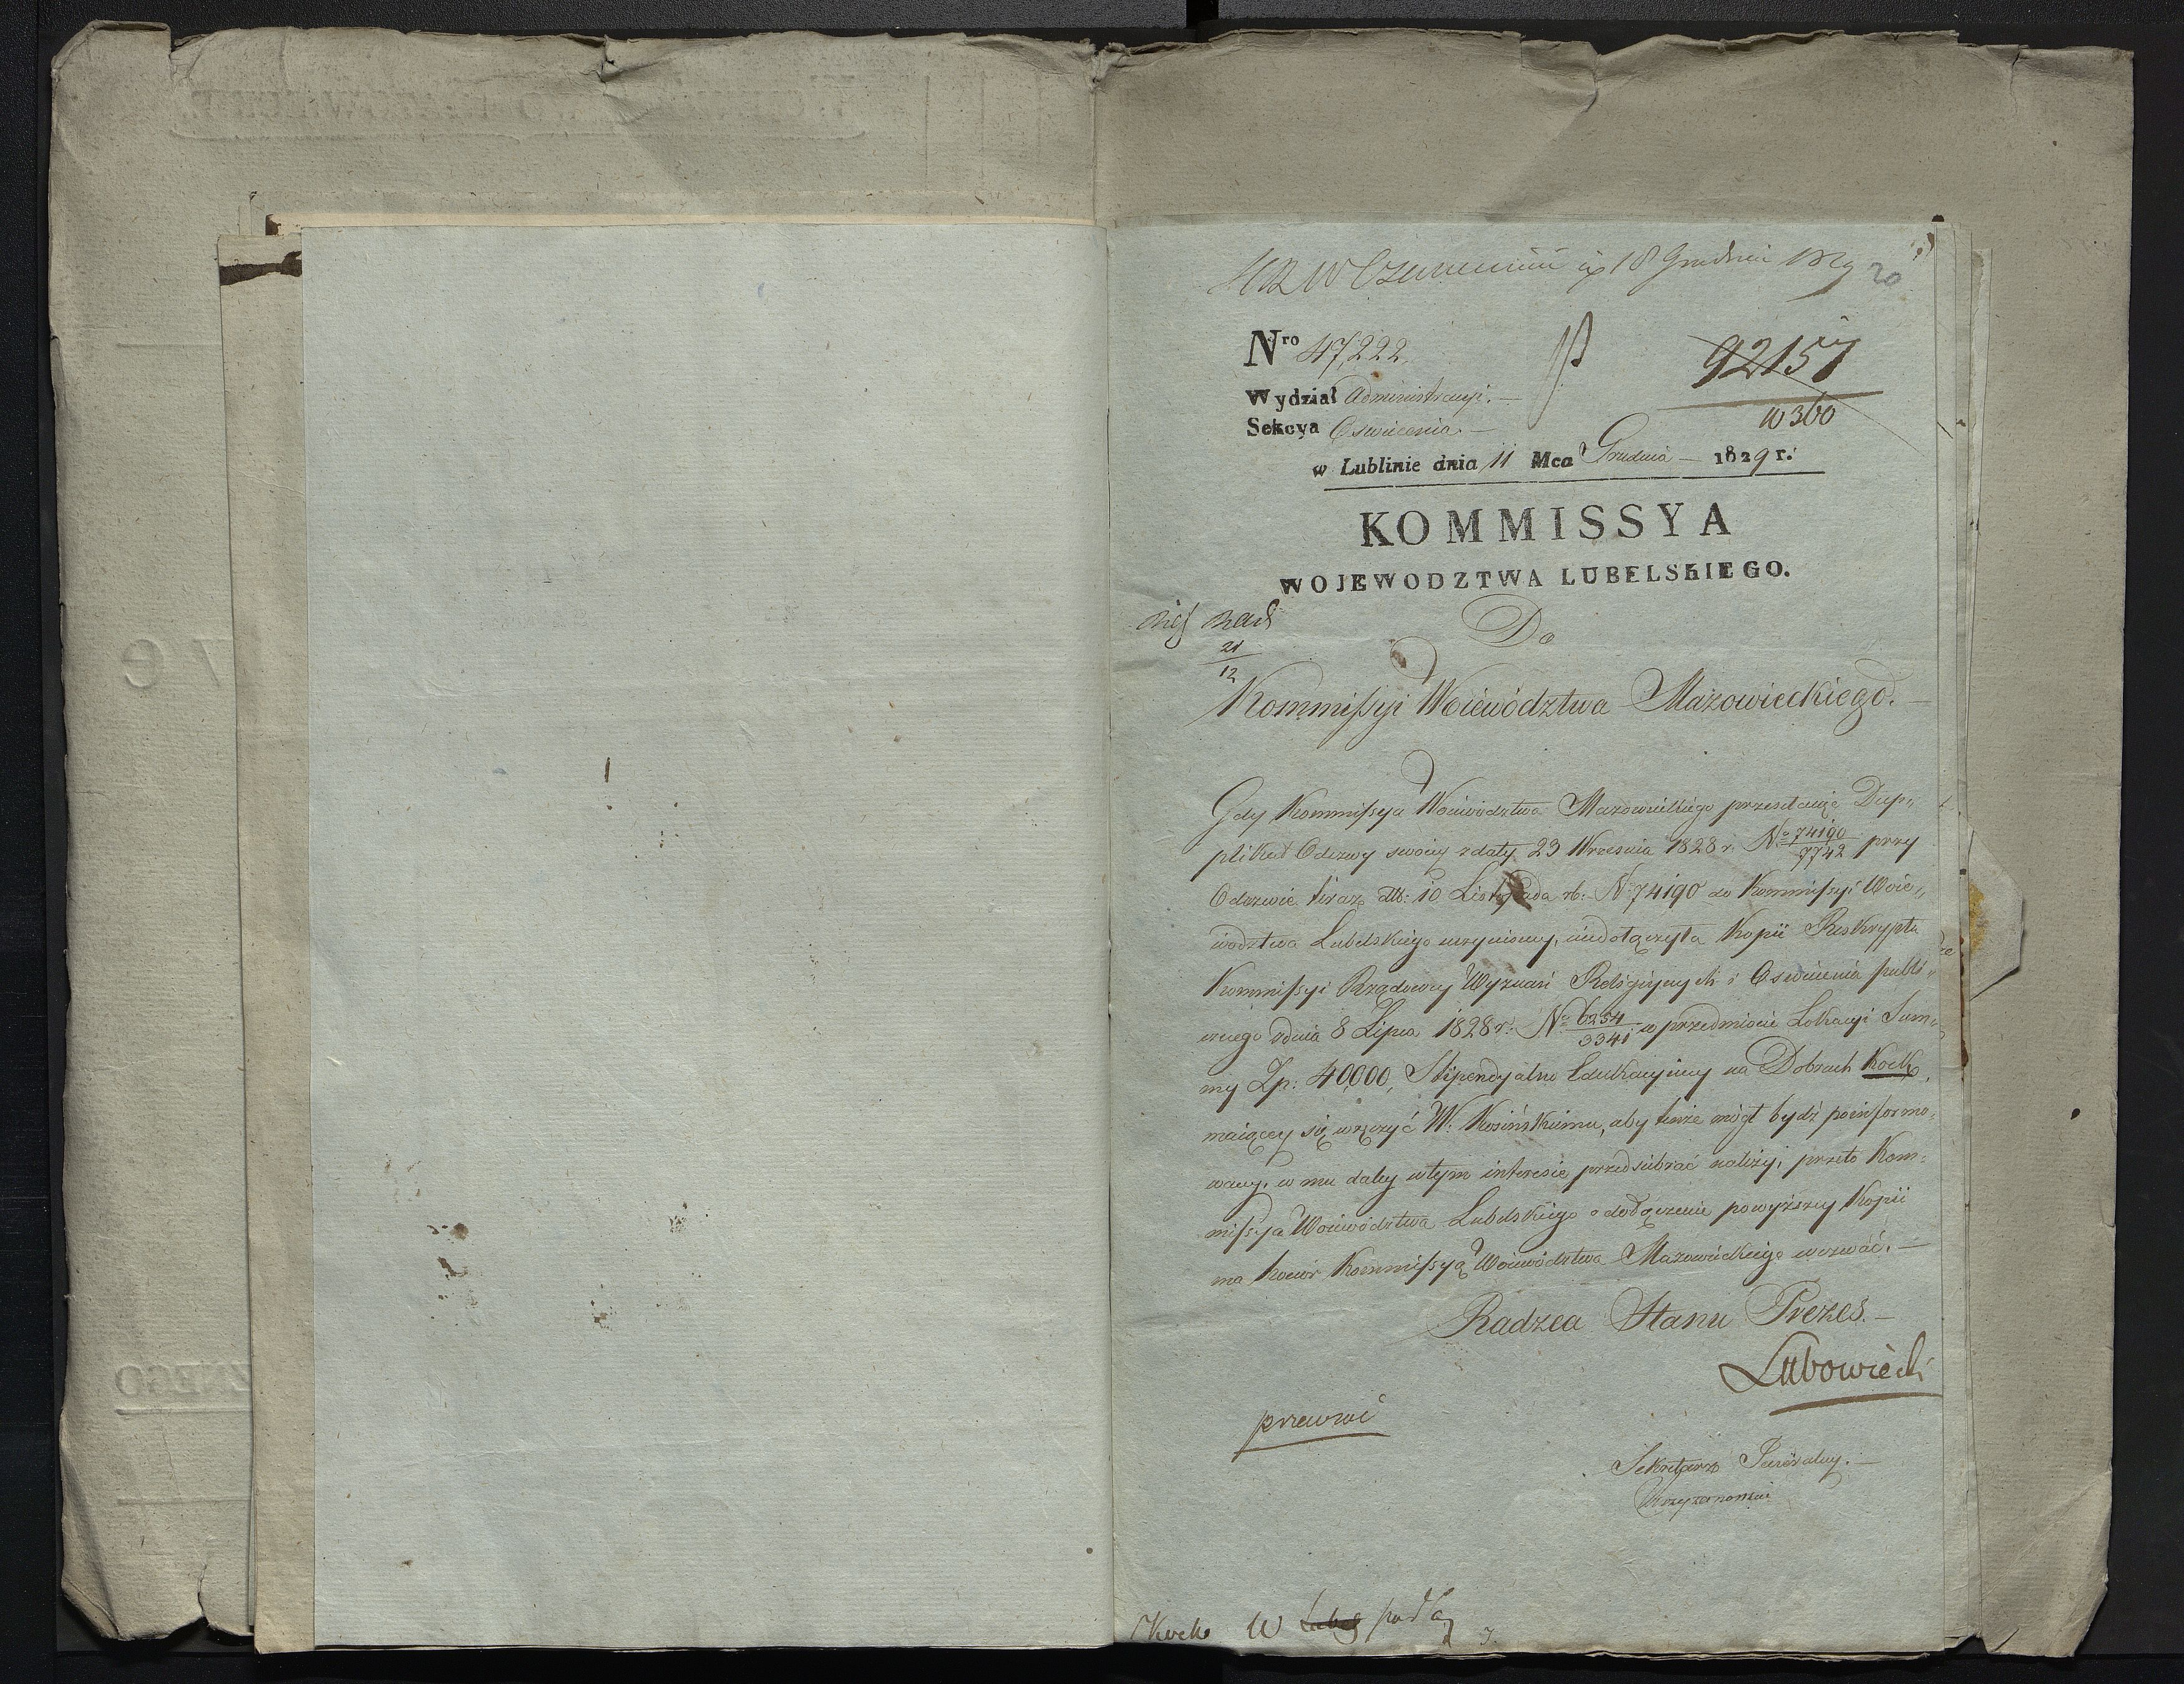 18 Grudnia 1829 20
Nro 47,222.
92157
Wydział Administracyi. —
10360
Sekcya Oswiecenia —
w Lublinie dnia 11 Mca Grudnia — 1829 r.
KOMMISSYA
WOJEWODZTWA LUBELSKIEGO.
Do
21
12
Kommissyi Woiewództwa Mazowieckiego. —
Gdy Kommissya Woiewództwa Mazowieckiego przesełaiąc Dup„
plikat Odezwy swoiey z daty 23 Września 1828 r. No 74190/7742 przy
Odezwie teraz dtt: 10 Listopada rb: No 74190 do Kommissyi Woie„
wodztwa Lubelskiego uczynioney, niedołączyła Kopii Reskryptu
Kommissyi Rządowey Wyznań Religiynych i Oswiecenia publi„
cznego z dnia 8 Lipca 1828 r. No 6254/3341 w przedmiocie Lokacyi Sum„
my Zp: 40,000, Stipendyalno Edukacyiney na Dobrach Kock,
maiącey się wręczyć W. Kosińskiemu, aby tenże mógł bydź poinformo„
wany, co mu daley w tym interesie przedsiebrać należy; przeto Kom„
missya Woiewództwa Lubelskiego o dołączenie powyższey Kopii
ma honor Kommissyą Woiewództwa Mazowieckiego wezwać. —
Radzca Stanu Prezes. —
Lubowiecki
Sekretarz Jeneralny. —
Krzyżanowski
W